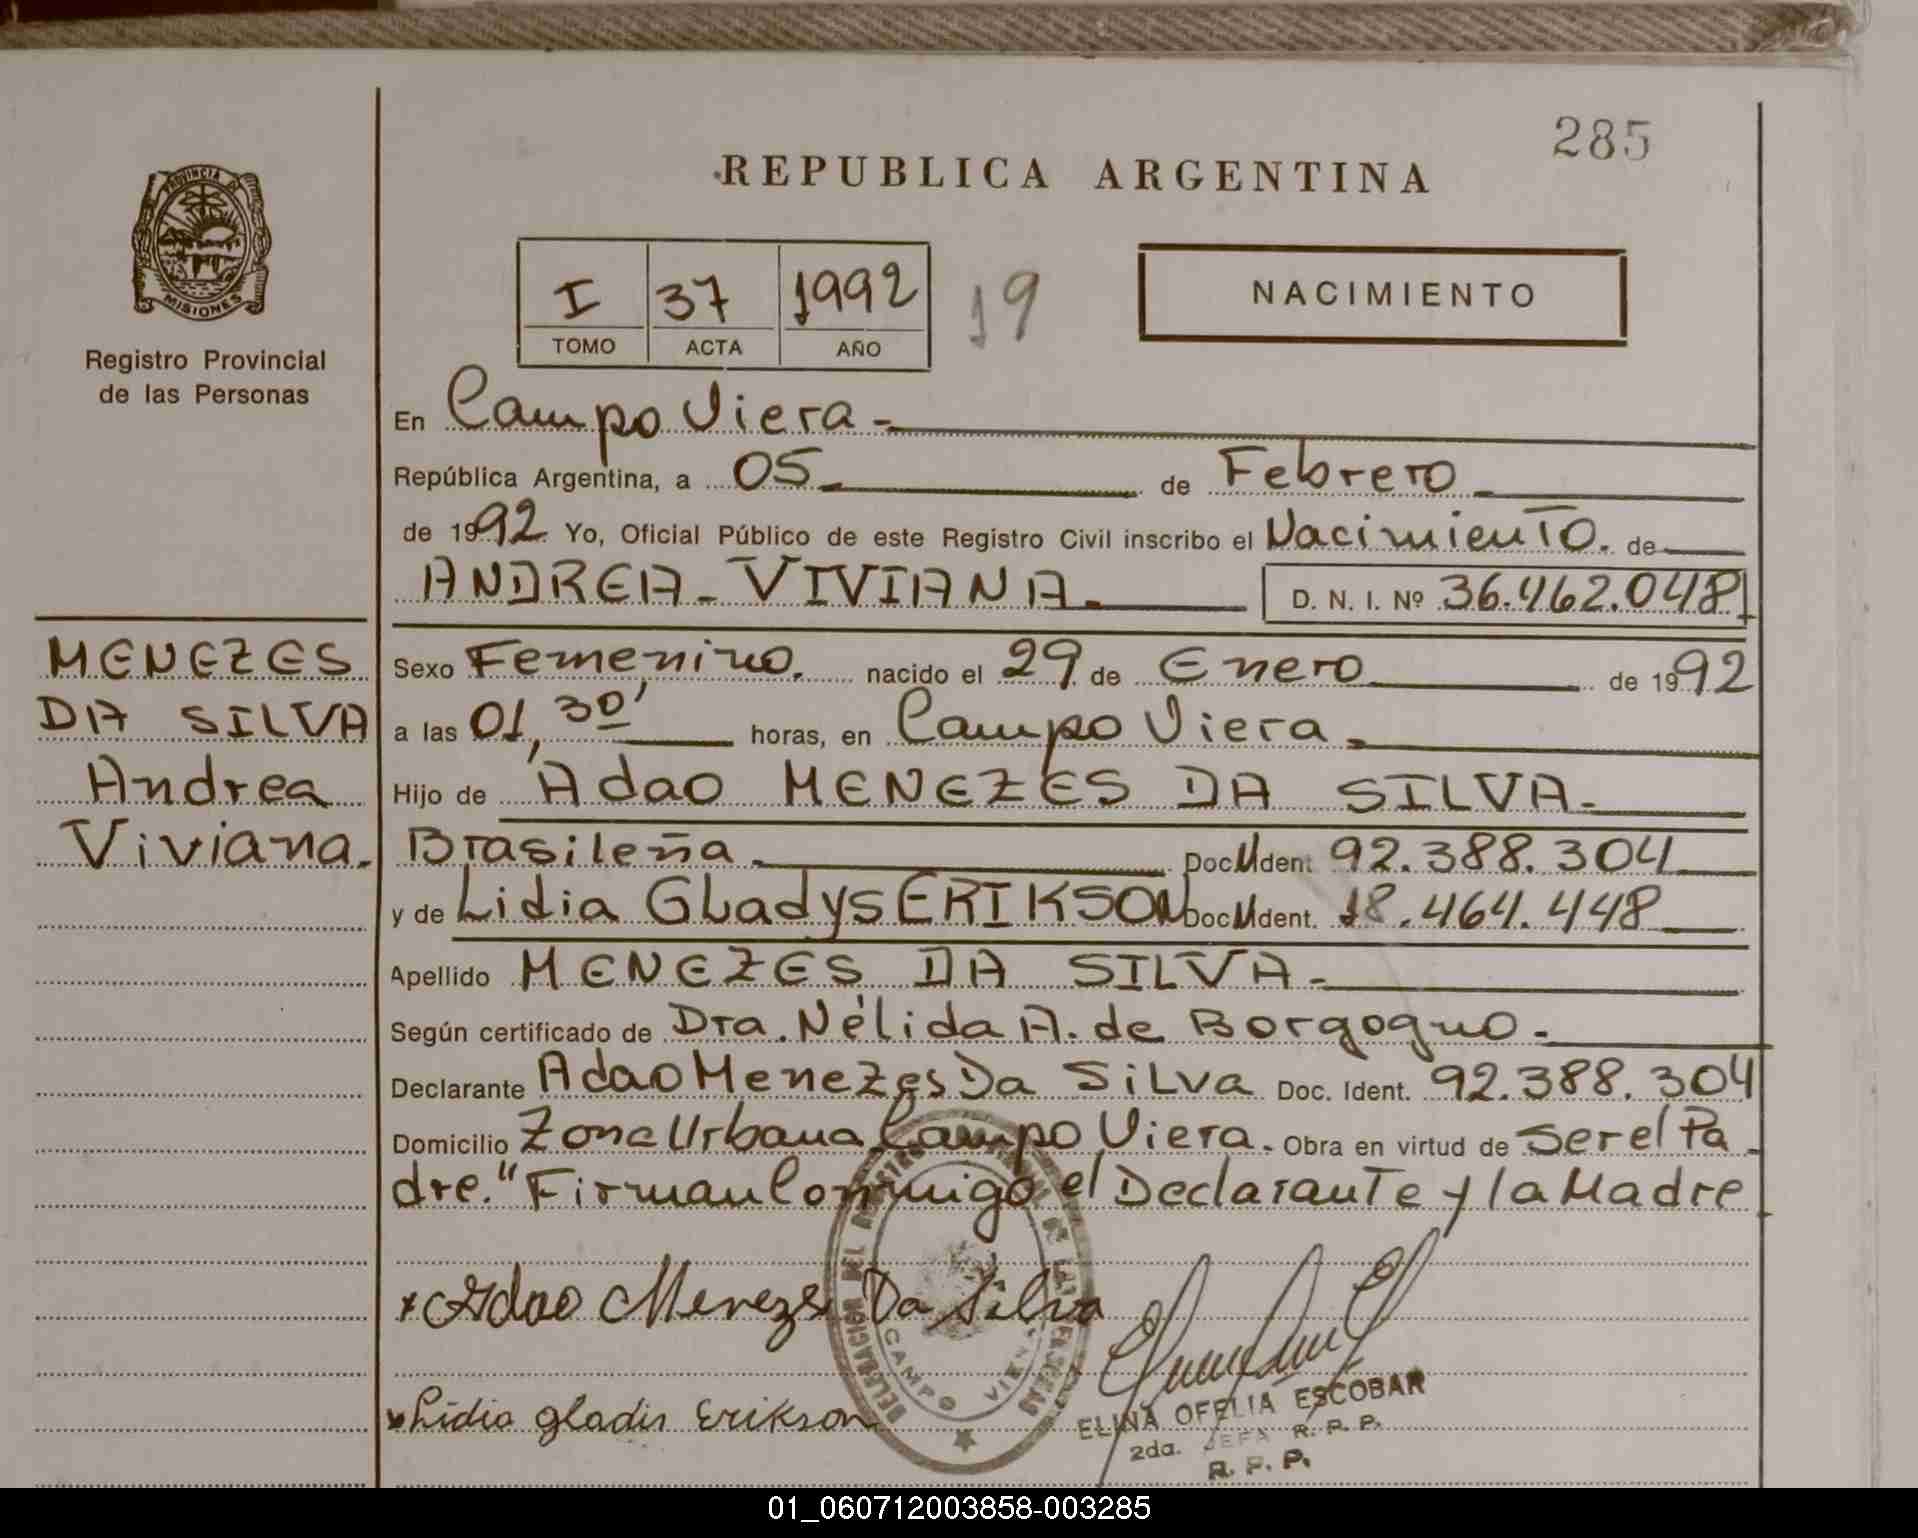 285
REPUBLICA ARGENTINA
PROVINCIA DE
MISIONES
Registro Provincial
de las Personas
I 37 1992 19
TOMO ACTA AÑO
NACIMIENTO
En Campo Viera -
República Argentina, a 05 de Febrero
de 1992 Yo, Oficial Público de este Registro Civil inscribo el Nacimiento. de
ANDREA - VIVIANA. D. N. I. Nº 36.462.048
MENEZES
DA SILVA
Andrea
Viviana.
Sexo Femenino. nacido el 29 de Enero de 1992
a las 01,30' horas, en Campo Viera.
Hijo de Adao MENEZES DA SILVA.
Brasileña. Doc. Ident. 92.388.304
y de Lidia GLadys ERIKSON Doc. Ident. 18.464.448
Apellido MENEZES DA SILVA.
Según certificado de Dra. Nélida A. de Borgogno.
Declarante Adao Menezes Da SiLva Doc. Ident. 92.388.304
Domicilio Zona Urbana Campo Viera. Obra en virtud de Ser el Pa-
dre." Firman Conmigo el Declarante y la Madre
Adao Menezes Da Silva
Lidia gladis Erikson
DELEGACION DEL REGISTRO PROVINCIAL DE LAS PERSONAS
CAMPO VIERA
ELINA OFELIA ESCOBAR
2da. JEFA R. P. P.
R. P. P.
01_060712003858-003285